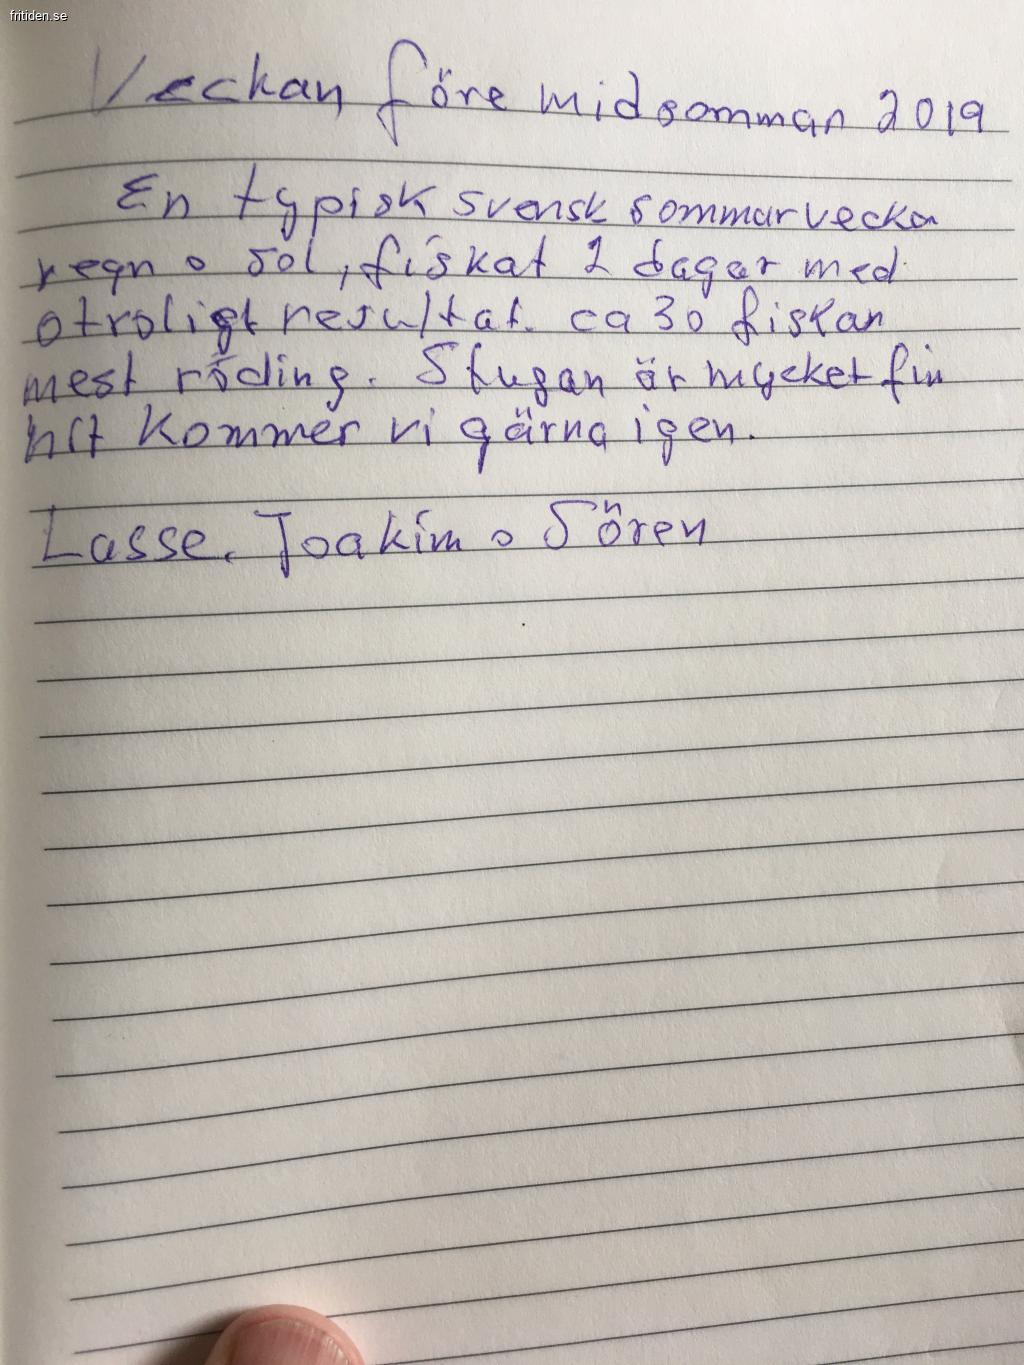 fritiden.se
Veckan före midsommar 2019
En typisk svensk sommarvecka
regn o sol, fiskat 2 dagar med
otroligt resultat. ca 30 fiskar
mest röding. Stugan är mycket fin
hit kommer vi gärna igen.
Lasse, Joakim o Sören